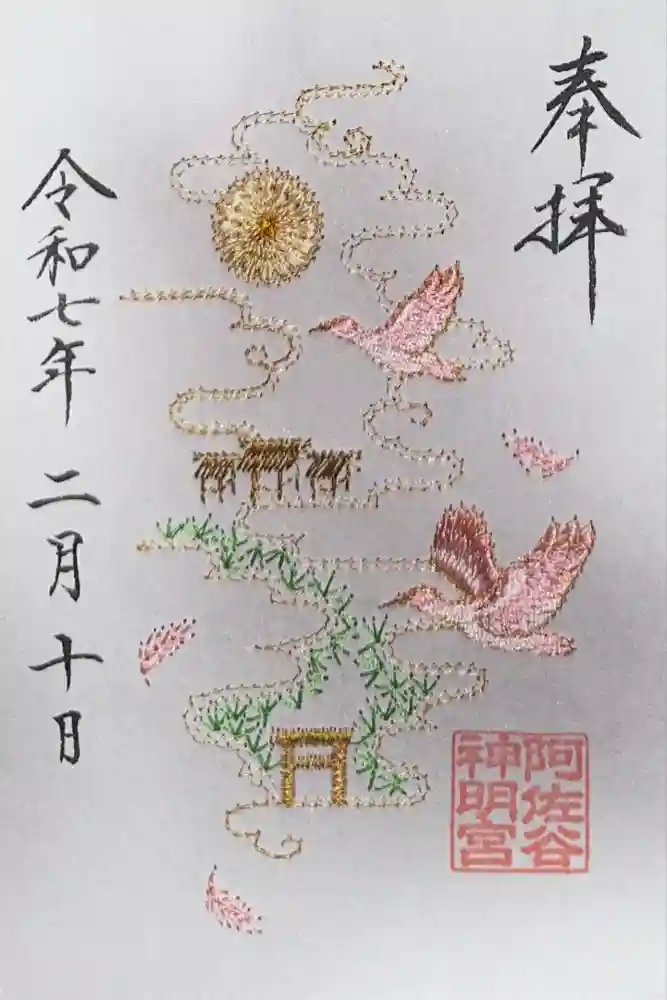 奉拝
阿佐谷
神明宮
令和七年二月十日